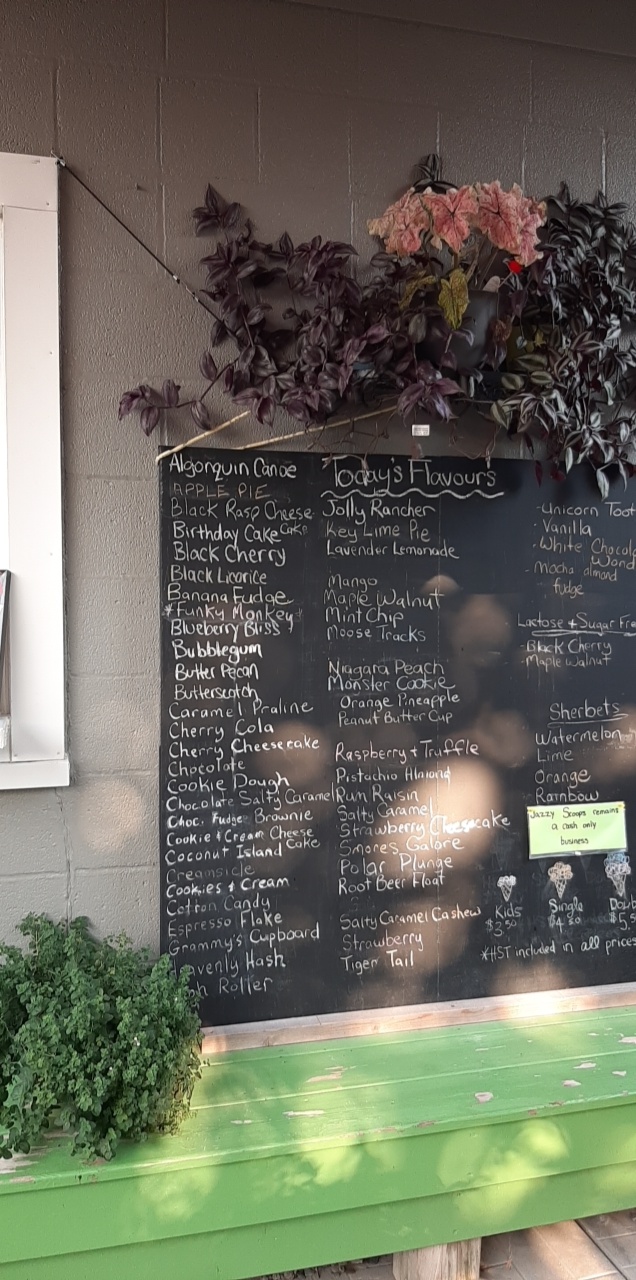 Algonquin Canoe
APPLE PIE
Black Rasp Cheese
Cake
Birthday Cake
Black Cherry
Black Licorice
Banana Fudge
*Funky Monkey*
Blueberry Bliss
Bubblegum
Butter Pecan
Butterscotch
Caramel Praline
Cherry Cola
Cherry Cheesecake
Chocolate
Cookie Dough
Chocolate Salty Caramel
Choc. Fudge Brownie
Cookie & Cream Cheese
Cake
Coconut Island
Creamsicle
Cookies & Cream
Cotton Candy
Espresso Flake
Grammy's Cupboard
venly Hash
h Roller
Today's Flavours
Jolly Rancher
Key Lime Pie
Lavender Lemonade
Mango
Maple Walnut
Mint Chip
Moose Tracks
Niagara Peach
Monster Cookie
Orange Pineapple
Peanut Butter Cup
Raspberry + Truffle
Pistachio Almond
Rum Raisin
Salty Caramel
Strawberry Cheesecake
Smores Galore
Polar Plunge
Root Beer Float
Salty Caramel Cashew
Strawberry
Tiger Tail
-Unicorn Toot
- Vanilla
- White Chocola
Wond
- Mocha almond
fudge
Lactose + Sugar Fre
-Black Cherry
-Maple Walnut
Sherbets
Watermelon
Lime
Orange
Rainbow
Jazzy Scoops remains
a cash only
business
Kids Single Doub
$3.50 $4.50 $5.5
*HST included in all prices